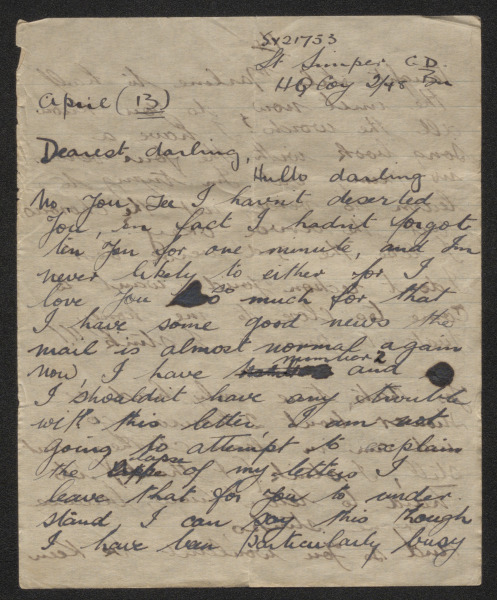 SX21753
Lt Simper C.D.
HQ Coy 2/48 Bn
April (13)
Dearest darling,
Hullo darling
No, You See I haven't deserted
You, in fact I hadn't forgot
ten You for one minute, and I'm
never likely to either for I
love You so much for that
I have some good news the
mail is almost normal again
now, I have number 2 and
I shouldn't have any trouble
with this letter, I am not
going to attempt to explain
the lapse of my letters I
leave that for You to under
stand I can say this though
I have ban particularly busy